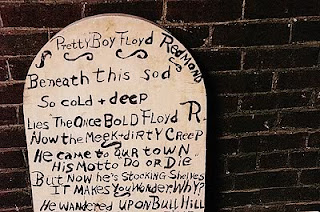 Pretty Boy Floyd Redmond
Beneath this sod
So cold + deep
Lies The Once BOLD Floyd R.
Now the Meek + dirty Creep
He came to our town
His Motto Do or Die
But Now he's Stocking Shelves
IT MAKES You Wonder Why?
He wandered upon Bull Hill